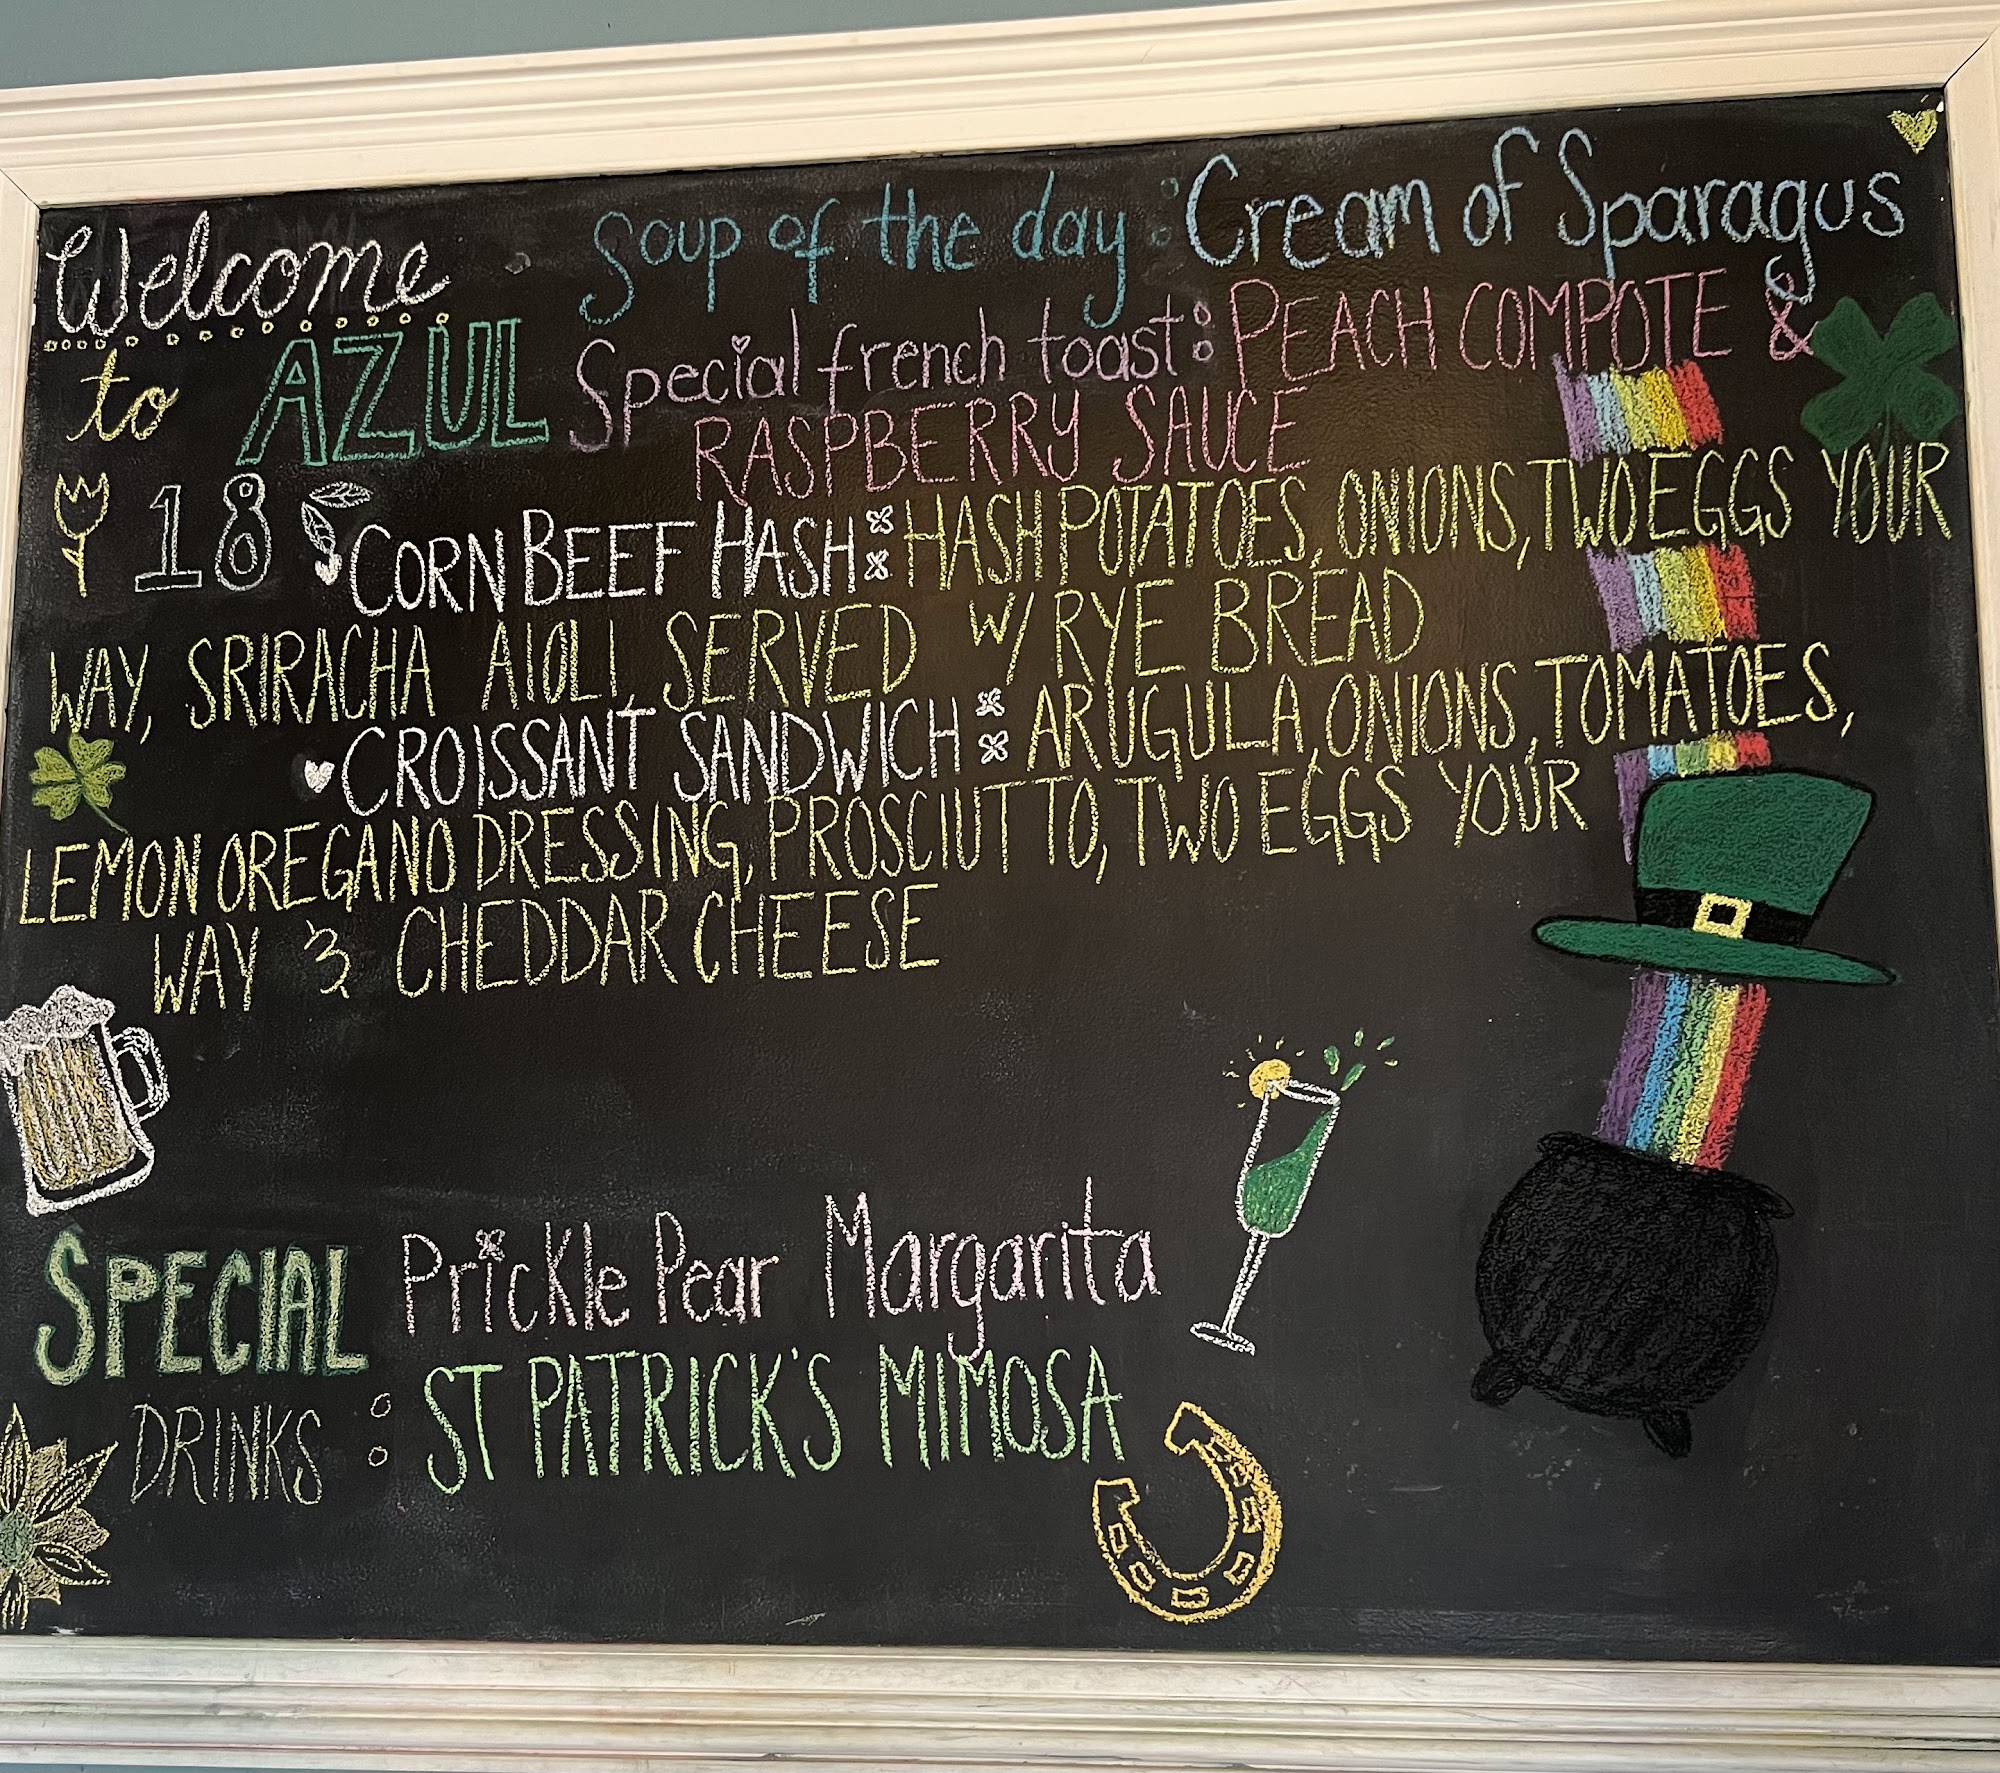 Welcome
to AZUL
18
Soup of the day: Cream of Sparagus
Special french toast: PEACH COMPOTE &
RASPBERRY SAUCE
CORN BEEF HASH: HASH POTATOES, ONIONS, TWO EGGS YOUR
WAY, SRIRACHA AIOLI, SERVED W/ RYE BREAD
CROISSANT SANDWICH: ARUGULA, ONIONS, TOMATOES,
LEMON OREGANO DRESSING, PROSCIUTTO, TWO EGGS YOUR
WAY & CHEDDAR CHEESE
SPECIAL
DRINKS:
Prickle Pear Margarita
ST PATRICK'S MIMOSA